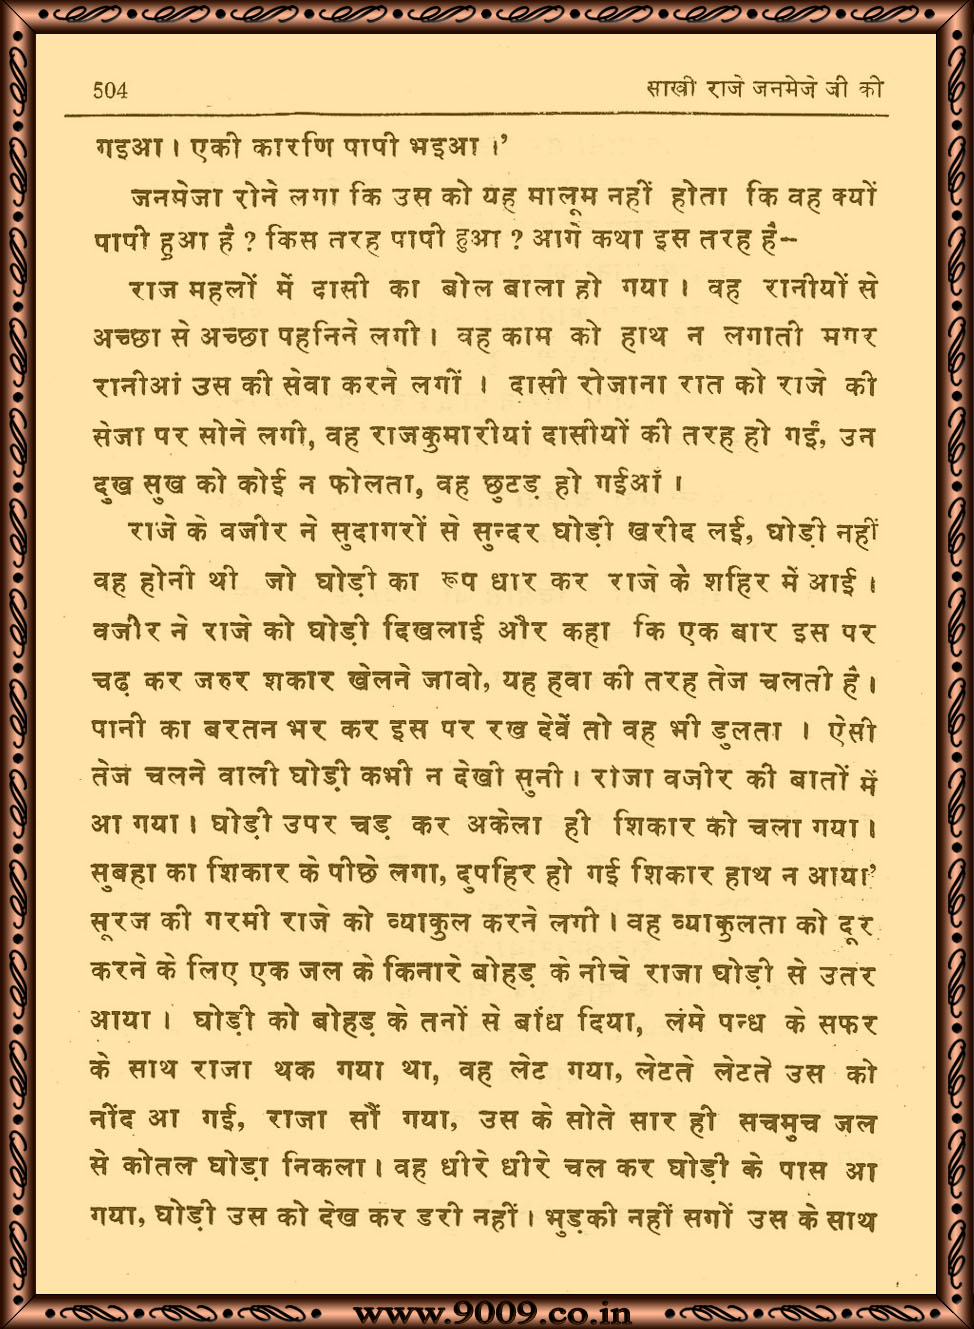 504 साखी राजे जनमेजे जी की
गइआ। एकी कारणि पापी भइआ।’
जनमेजा रोने लगा कि उस को यह मालूम नहीं होता कि वह क्यों
पापी हुआ है ? किस तरह पापी हुआ ? आगे कथा इस तरह है–
राज महलों में दासी का बोल बाला हो गया। वह रानीयों से
अच्छा से अच्छा पहनिने लगी। वह काम को हाथ न लगाती मगर
रानीआं उस की सेवा करने लगीं । दासी रोजाना रात को राजे की
सेजा पर सोने लगी, वह राजकुमारीयां दासीयों की तरह हो गईं, उन
दुख सुख को कोई न फोलता, वह छुटड़ हो गईआँ ।
राजे के वजीर ने सुदागरों से सुन्दर घोड़ी खरीद लई, घोड़ी नहीं
वह होनी थी जो घोड़ी का रूप धार कर राजे के शहिर में आई ।
वजीर ने राजे को घोड़ी दिखलाई और कहा कि एक बार इस पर
चढ़ कर जरुर शकार खेलने जावो, यह हवा की तरह तेज चलती है।
पानी का बरतन भर कर इस पर रख देवें तो वह भी डुलता । ऐसी
तेज चलने वाली घोड़ी कभी न देखी सुनी। राजा वजीर की बातों में
आ गया। घोड़ी उपर चड़ कर अकेला ही शिकार को चला गया।
सुबहा का शिकार के पीछे लगा, दुपहिर हो गई शिकार हाथ न आया’
सूरज की गरमी राजे को व्याकुल करने लगी। वह व्याकुलता को दूर
करने के लिए एक जल के किनारे बोहड़ के नीचे राजा घोड़ी से उतर
आया। घोड़ी को बोहड़ के तनों से बांध दिया, लंमे पन्ध के सफर
के साथ राजा थक गया था, वह लेट गया, लेटते लेटते उस को
नींद आ गई, राजा सौं गया, उस के सोते सार ही सचमुच जल
से कोतल घोड़ा निकला। वह धीरे धीरे चल कर घोड़ी के पास आ
गया, घोड़ी उस को देख कर डरी नहीं। भुड़की नहीं सगों उस के साथ
www.9009.co.in